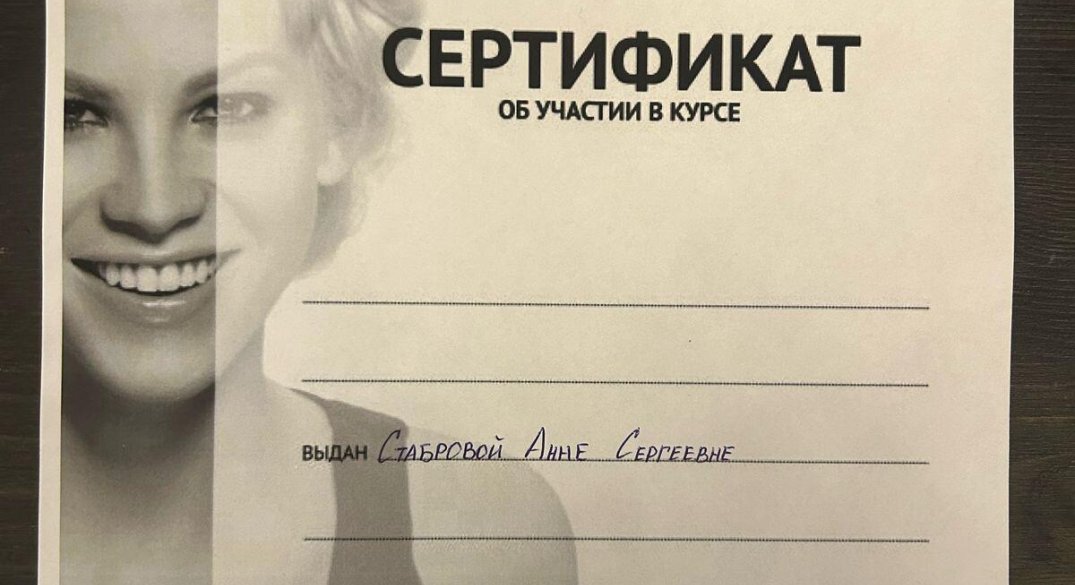 СЕРТИФИКАТ
ОБ УЧАСТИИ В КУРСЕ
ВЫДАН Стабровой Анне Сергеевне